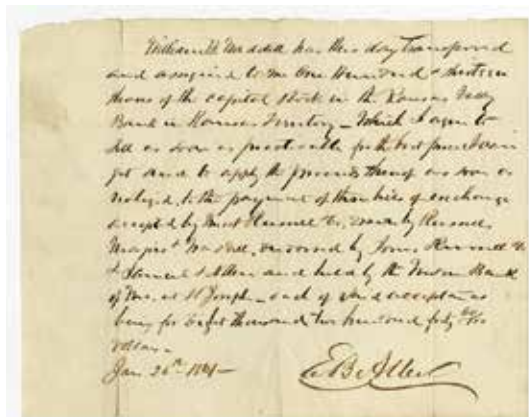 William B. Waddell has this day transferred
and assigned to me One Hundred & thirteen
shares of the capital stock in the Kansas Valley
Bank in Kansas Territory – Which I agree to
sell as soon as practicable for the best price I can
get and to apply the proceeds thereof as soon as
realized, to the payment of three bills of exchange
accepted by Russell & Co, drawn by Russell
Majors & Waddell, endorsed by Jones Russell &
& Samuel & Allen and held by the Bank
of Mo. at St Joseph – each of said acceptances
being for Eight thousand two hundred forty
dollars –
Jan 26th 1861 –
E B Allen